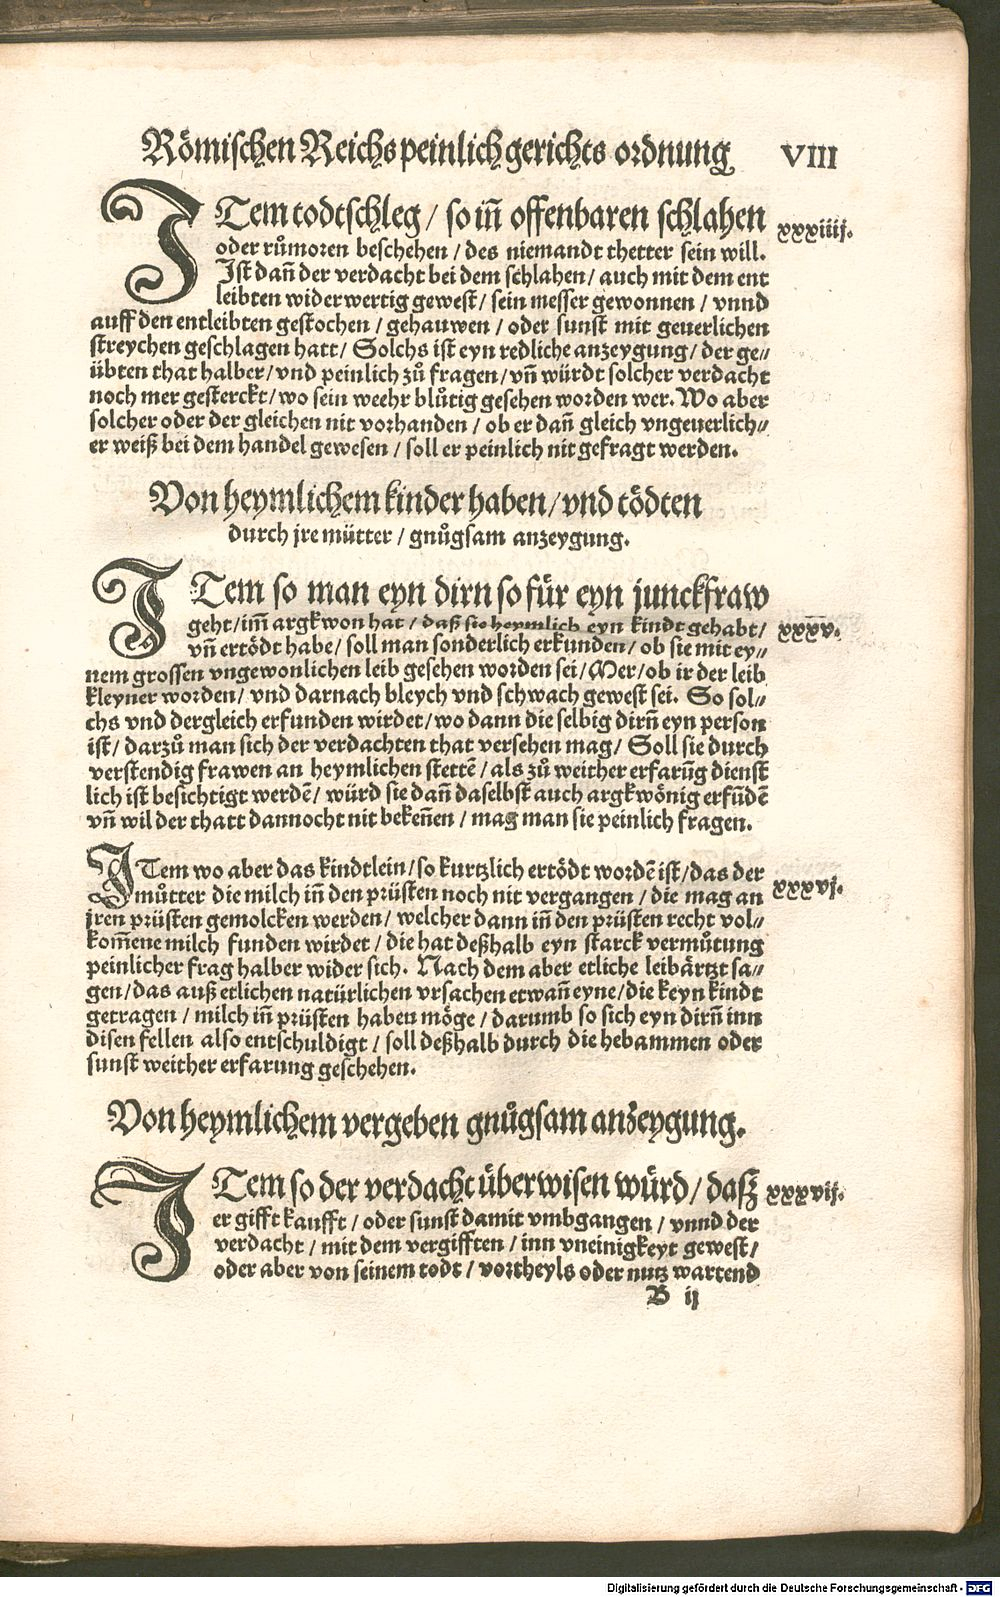 Römischen Reichs peinlich gerichts ordnung VIII
ITem todtschleg / so iñ offenbaren schlahen xxxiiij.
oder růmoren beschehen / des niemandt thetter sein will.
Ist dañ der verdacht bei dem schlahen / auch mit dem ent
leibten widerwertig gewest / sein messer gewonnen / vnnd
auff den entleibten gestochen / gehauwen / oder sunst mit geuerlichen
streychen geschlagen hatt / Solchs ist eyn redliche anzeygung / der ge⸗
übten that halber / vnd peinlich zů fragen / vñ würdt solcher verdacht
noch mer gesterckt / wo sein weehr blůtig gesehen worden wer. Wo aber
solcher oder der gleichen nit vorhanden / ob er dañ gleich vngeuerlich⸗
er weiß bei dem handel gewesen / soll er peinlich nit gefragt werden.
Von heymlichem kinder haben / vnd tödten
durch jre mütter / gnůgsam anzeygung.
ITem so man eyn dirn so für eyn junckfraw
geht / im̃ argkwon hat / daß sie heymlich eyn kindt gehabt / xxxv.
vñ ertödt habe / soll man sonderlich erkunden / ob sie mit ey⸗
nem grossen vngewonlichen leib gesehen worden sei / Mer / ob ir der leib
kleyner worden / vnd darnach bleych vnd schwach gewest sei. So sol⸗
chs vnd dergleich erfunden wirdet / wo dann die selbig dirñ eyn person
ist / darzů man sich der verdachten that versehen mag / Soll sie durch
verstendig frawen an heymlichen stettẽ / als zů weither erfarũg dienst
lich ist besichtigt werdẽ / würd sie dañ daselbst auch argkwönig erfũdẽ
vñ wil der thatt dannocht nit bekeñen / mag man sie peinlich fragen.
ITem wo aber das kindtlein / so kurtzlich ertödt wordẽ ist / das der
můtter die milch iñ den prüsten noch nit vergangen / die mag an xxxvj.
jren prüsten gemolcken werden / welcher dann iñ den prüsten recht vol⸗
kom̃ene milch funden wirdet / die hat deßhalb eyn starck vermůtung
peinlicher frag halber wider sich. Nach dem aber etliche leibärtzt sa⸗
gen / das auß etlichen natürlichen vrsachen etwañ eyne / die keyn kindt
getragen / milch iñ prüsten haben möge / darumb so sich eyn dirñ inn
disen fellen also entschuldigt / soll deßhalb durch die hebammen oder
sunst weither erfarung geschehen.
Von heymlichem vergeben gnůgsam anzeygung.
ITem so der verdacht überwisen würd / dasz xxxvij.
er gifft kaufft / oder sunst damit vmbgangen / vnnd der
verdacht / mit dem vergifften / inn vneinigkeyt gewest /
oder aber von seinem todt / vortheyls oder nutz wartend
B ij
Digitalisierung gefördert durch die Deutsche Forschungsgemeinschaft - DFG